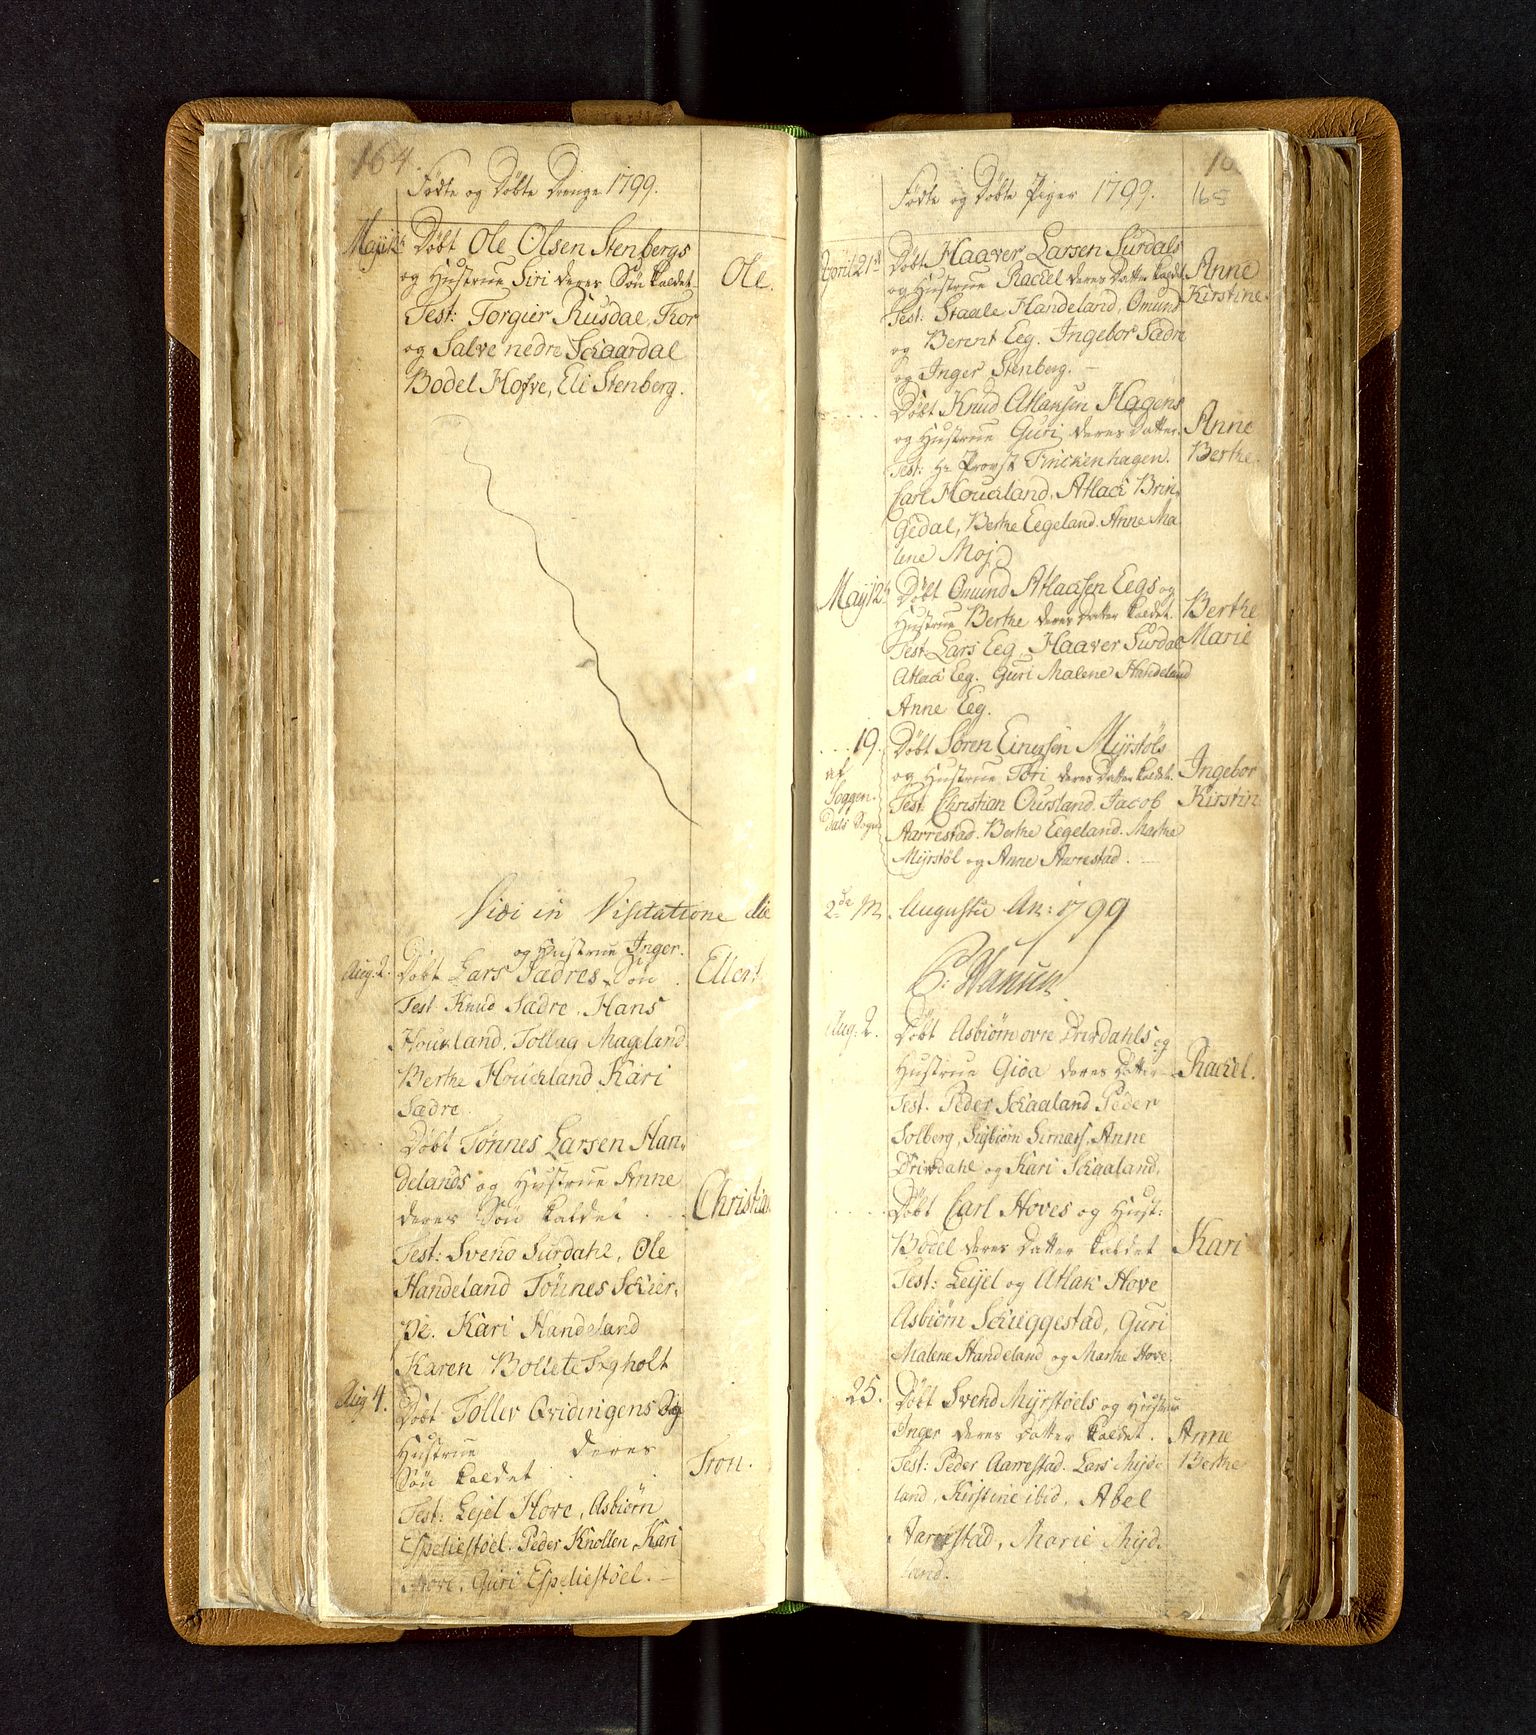 164
Fødte og Døbte Drenge 1799.
May 12te Døbt Ole Olsen Stenbergs
og Hustrue Siri deres Søn kaldet Ole.
Test: Torgier Rusdal, Thor
og Salve nedre Schaardal
Bodel Hofve, Eli Stenberg.
Vidi in Visitatione die
og Hustrue Inger.
Aug. 2. Døbt Lars Sædres Søn Ellert
Test Knud Sædre, Hans
Houkland, Tollag Mageland
Berthe Houckland Kari
Sædre.
Døbt Tønnes Larsen Han-
delands og Hustrue Anne
deres Søn kaldet Christian
Test: Svend Surdahl, Ole
Handeland Tønnes Schier-
pe. Kari Handeland
Karen Bollete Fegholt
Aug 4. Døbt Tollev Qvidingens og
Hustrue deres
Søn kaldet Tron.
Test: Lejel Hove, Asbiørn
Espeliestøel. Peder Knollen, Kari
Hove. Guri Espeliestøel.
165
Fødte og Døbte Piger 1799.
April 21de Døbt Haaver Larsen Surdals
og Hustrue Rachel deres Datter kaldet Anne
Test: Staale Handeland, Omund Kirstine.
og Berent Eeg. Ingebor Sædre
og Inger Stenberg.
Døbt Knud Atlaksen Hagens
og Hustrue Guri deres Datter. Anne
Test: Hr Provst Finckenhagen. Berthe.
Carl Houckland, Atlack Brin-
gedal, Berthe Eegeland. Anne Ma
lene Moj
May 12te Døbt Omund Atlaksen Eegs og
Hustrue Berthe deres Datter kaldet. Berthe
Test Lars Eeg, Haaver Surdal Marie
Atlack Eeg. Guri Malene Handeland
Anne Eeg.
19. Døbt Søren Einersen Myrstøls
af og Hustrue Tori deres Datter kaldet. Ingebor
Soggen- Test Christian Oursland. Jacob Kirstin.
dals Sogn Aarrestad. Berthe Eegeland. Marthe
Myrstøl og Anne Aarrestad.
2de M. Augusti An: 1799
P: Hansen
Aug: 2. Døbt Asbiørn ovre Drivdahls og
Hustrue Gioa deres Datter Rachel.
Test. Peder Schaaland Peder
Solberg, Sigbiørn Sirnæs, Anne
Drivdahl og Kari Schaaland.
Døbt Carl Hoves og Hust:
Bodel deres Datter kaldet Kari
Test: Leijel og Atlak Hove
Asbiørn Schieggestad, Guri
Malene Handeland og Marthe Hove.
25. Døbt Svend Myrstøels og Hustrue
Inger deres Datter kaldet. Anne
Test: Peder Aarrestad. Lars Mijd- Berthe
land, Kirstine ibid, Abel
Aarrestad, Marie Mijd-
land.